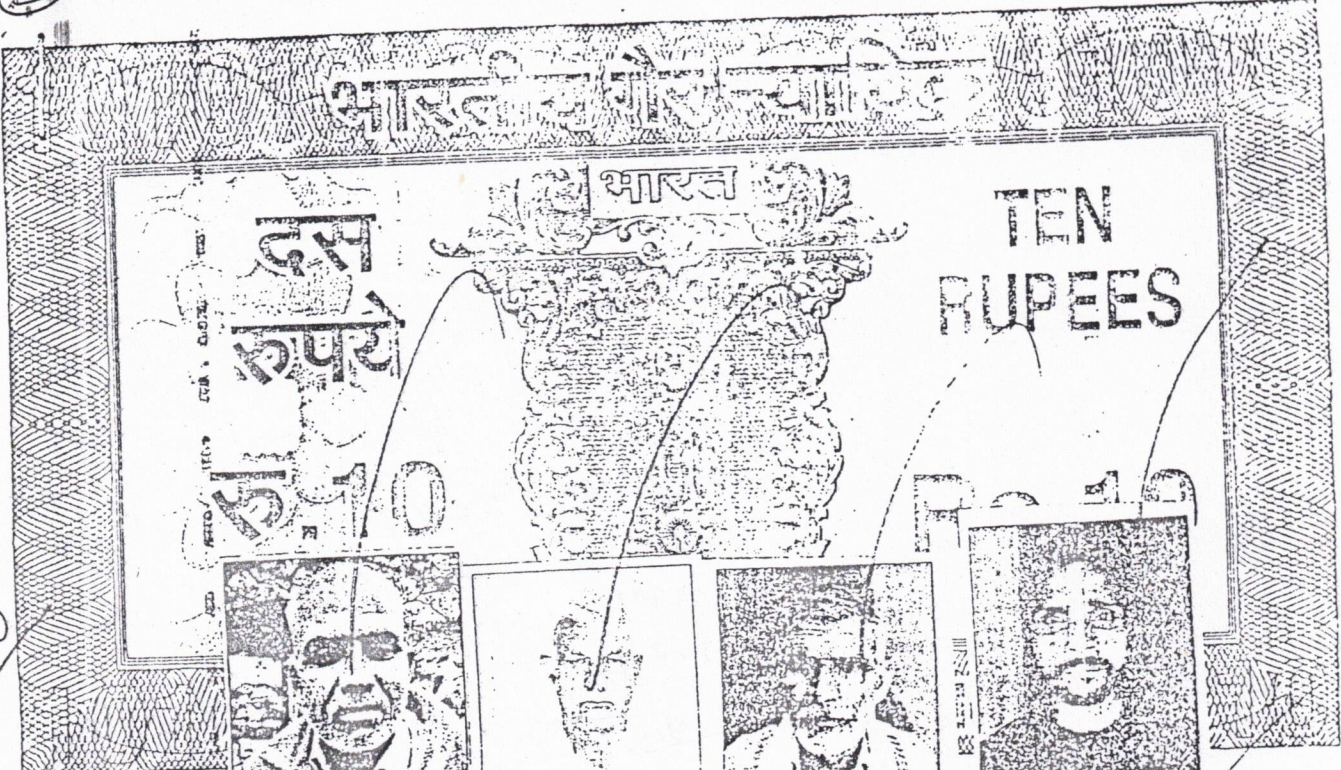 भारतीय गैर न्यायिक
भारत
दस
रुपये
रु.10
TEN
RUPEES
Rs.10